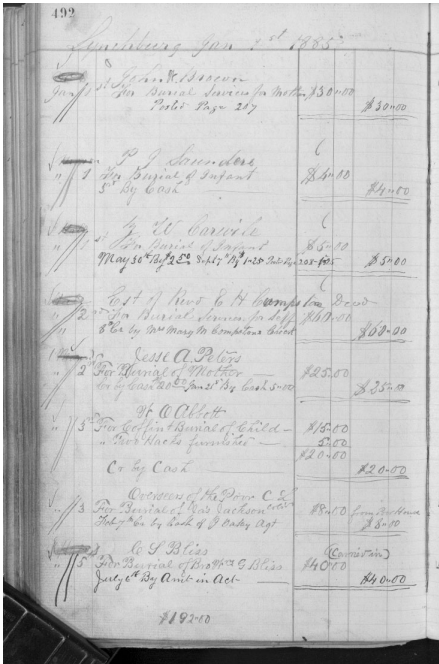 492
Lynchburg Jan 1st 1885
John H Brown
Jan 1st For Burial Services for Mother $30.00
Posted Page 207 $30.00
P J Saunders
" 1 For Burial of Infant $4.00
5" By Cash $4.00
W Carwile
" 1st For Burial of Infant $5.00
May 30th By 2.50 Sept 5" By 1.25 $5.00
Est of Revd E H Campston Decd
" 2 For Burial Services for Self $60.00
Cr by Mrs Mary M Campstons Check $60.00
Jesse A Peters
" 2 For Burial of Mother $25.00
Cr by Cash 20.00 Jan 21st By Cash 5.00 $25.00
W O Abbott
" 3 For Coffin & Burial of Child $15.00
" Two Hacks furnished 5.00
$20.00
Cr by Cash $20.00
Overseers of the Poor
" 3 For Burial of Jas Jackson $8.00 from
Feby 7th Cr by Cash of J Oakey Agt $8.00
C S Bliss (Carried in)
" 5 For Burial of Bro G Bliss $40.00
July 6th By Amt in Act $40.00
$192.00